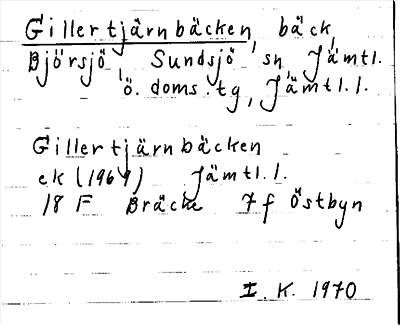 Gillertjärnbäcken, bäck,
Björsjö, Sundsjö sn, Jämtl.
ö. doms. tg, Jämtl. l.
Gillertjärnbäcken
ek (1964) Jämtl. l.
18 F Bräcke 7 f Östbyn
I. K. 1970